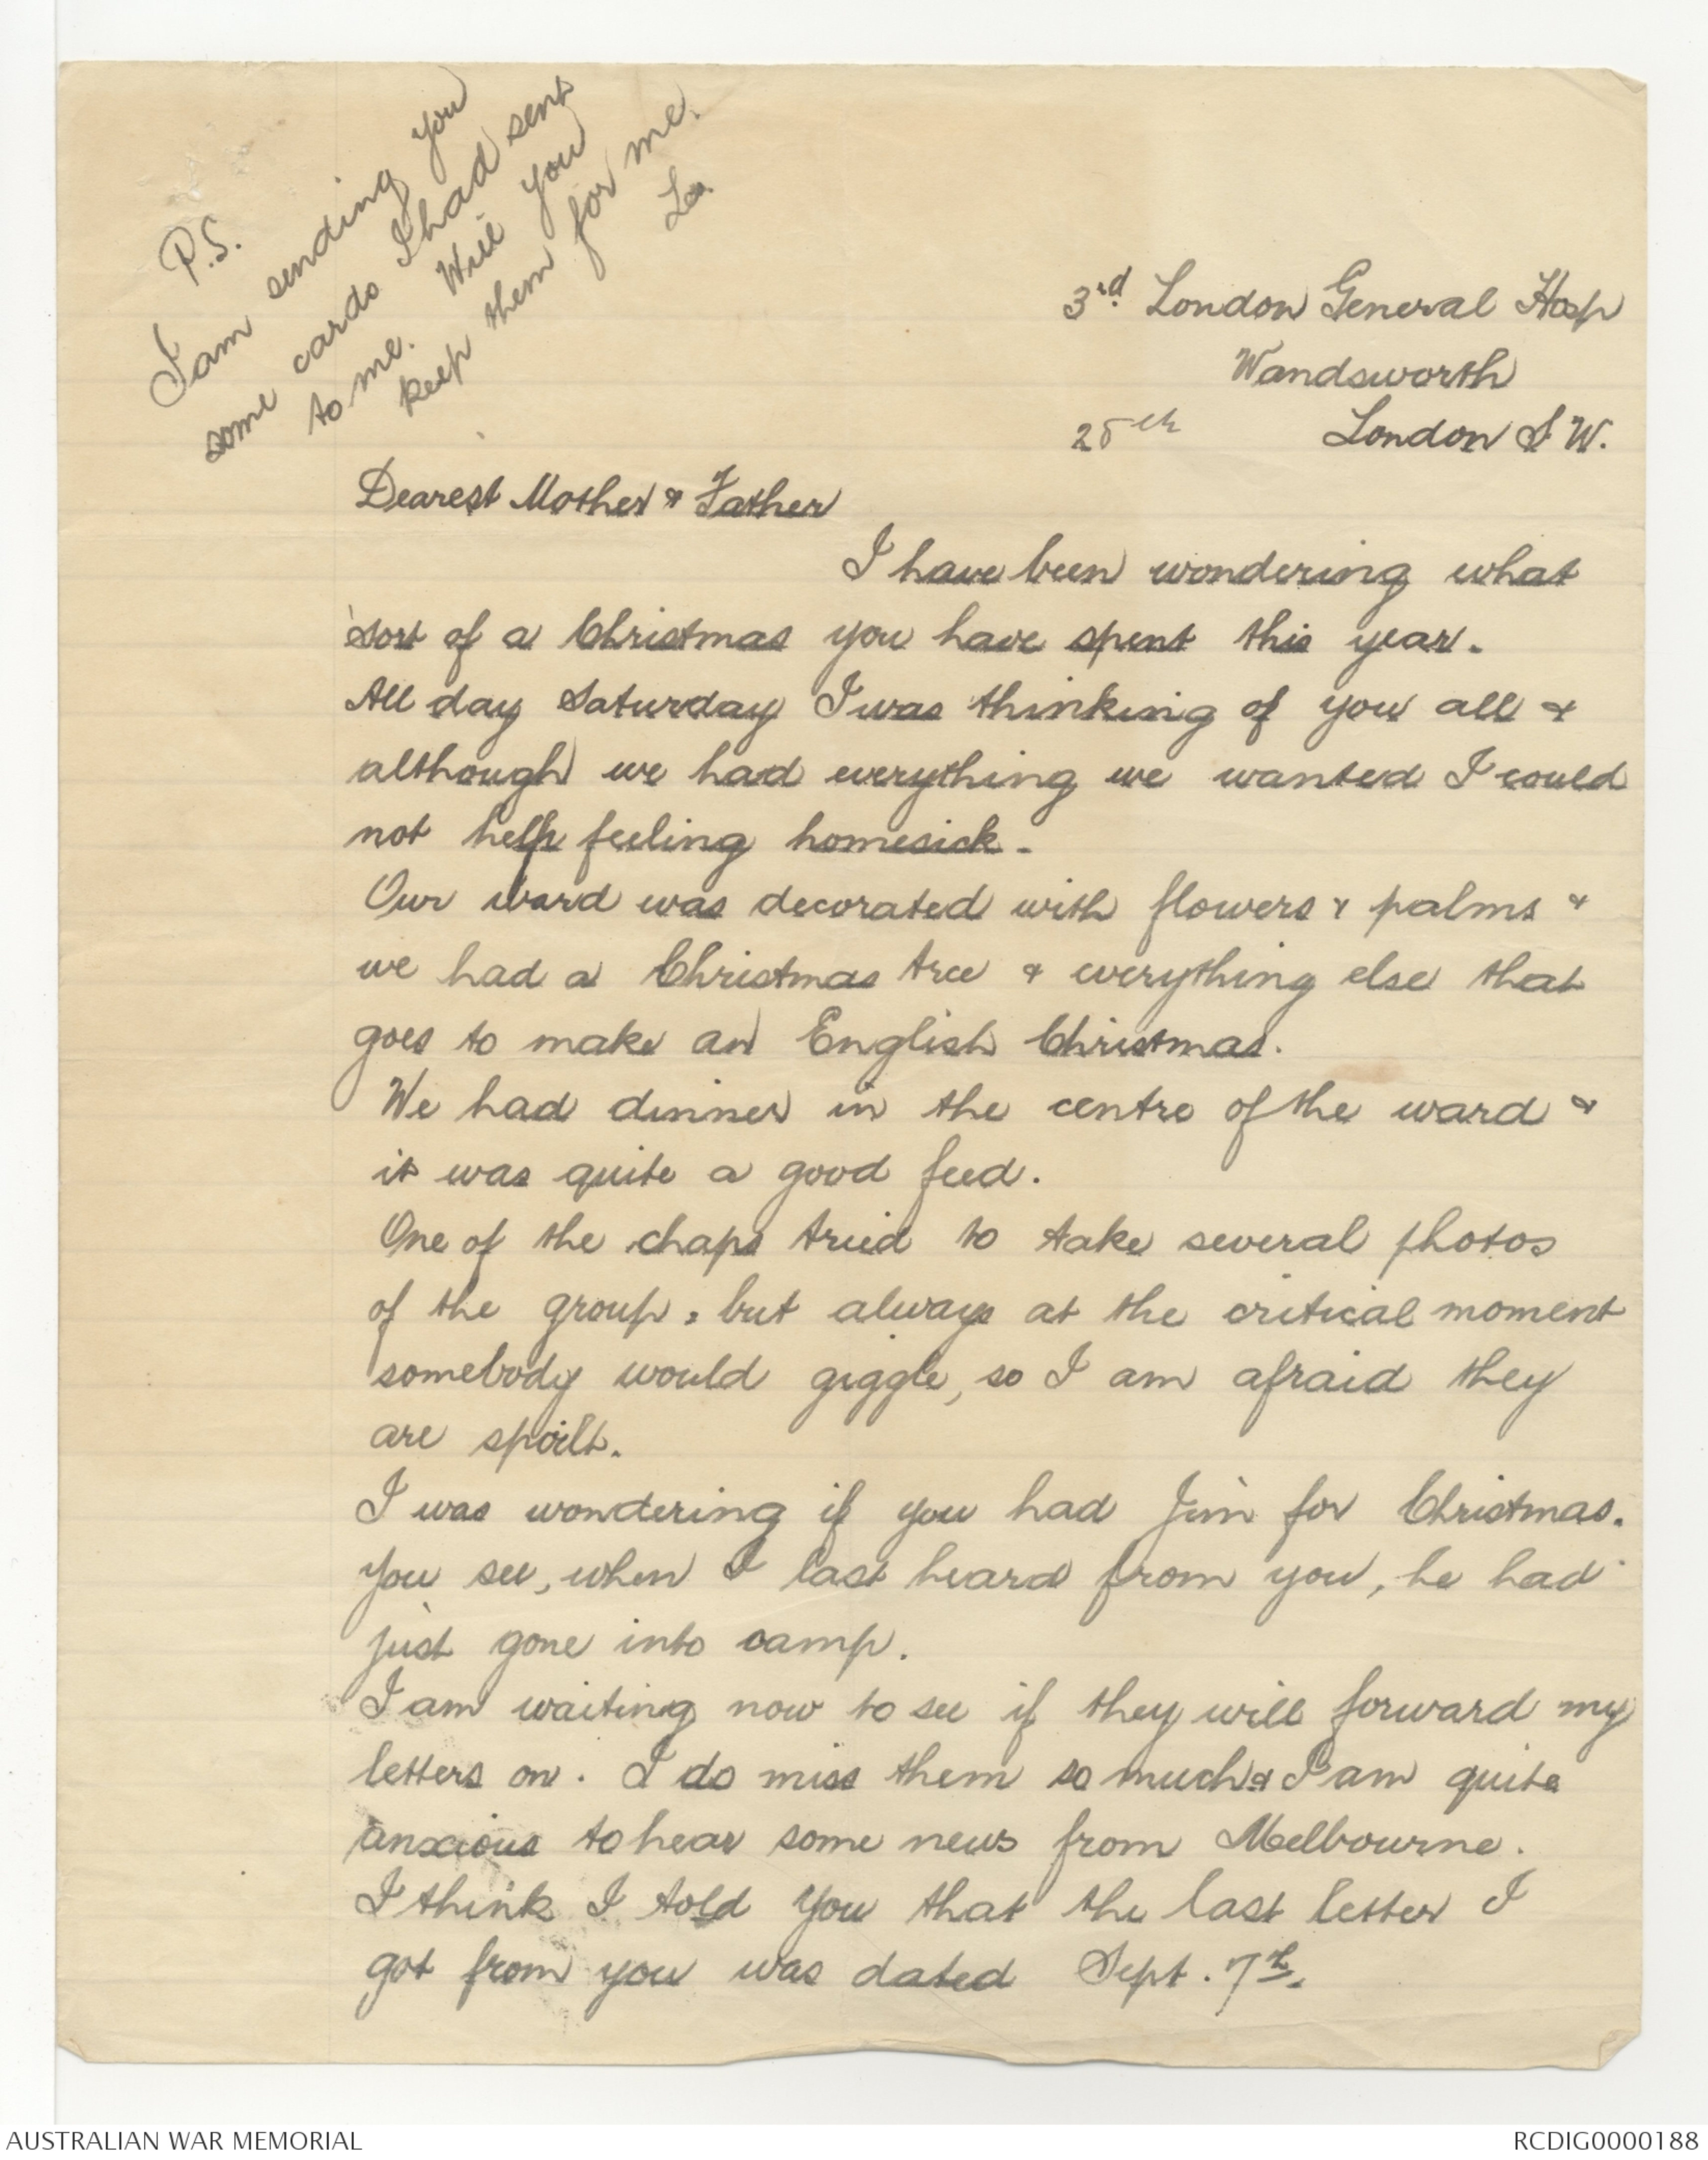 P.S.
I am sending you
some cards I had sent
to me. Will you
keep them for me.
Les.
3rd London General Hosp
Wandsworth
London S.W.
Dearest Mother & Father
I have been wondering what
sort of a Christmas you have spent this year.
All day Saturday I was thinking of you all &
although we had everything we wanted I could
not help feeling homesick.
Our ward was decorated with flowers & palms &
we had a Christmas tree & everything else that
goes to make an English Christmas.
We had dinner in the centre of the ward &
it was quite a good feed.
One of the chaps tried to take several photos
of the group, but always at the critical moment
somebody would giggle, so I am afraid they
are spoilt.
I was wondering if you had Jim for Christmas.
You see, when I last heard from you, he had
just gone into camp.
I am waiting now to see if they will forward my
letters on. I do miss them so much & I am quite
anxious to hear some news from Melbourne.
I think I told you that the last letter I
got from you was dated Sept. 7th.
AUSTRALIAN WAR MEMORIAL
RCDIG0000188